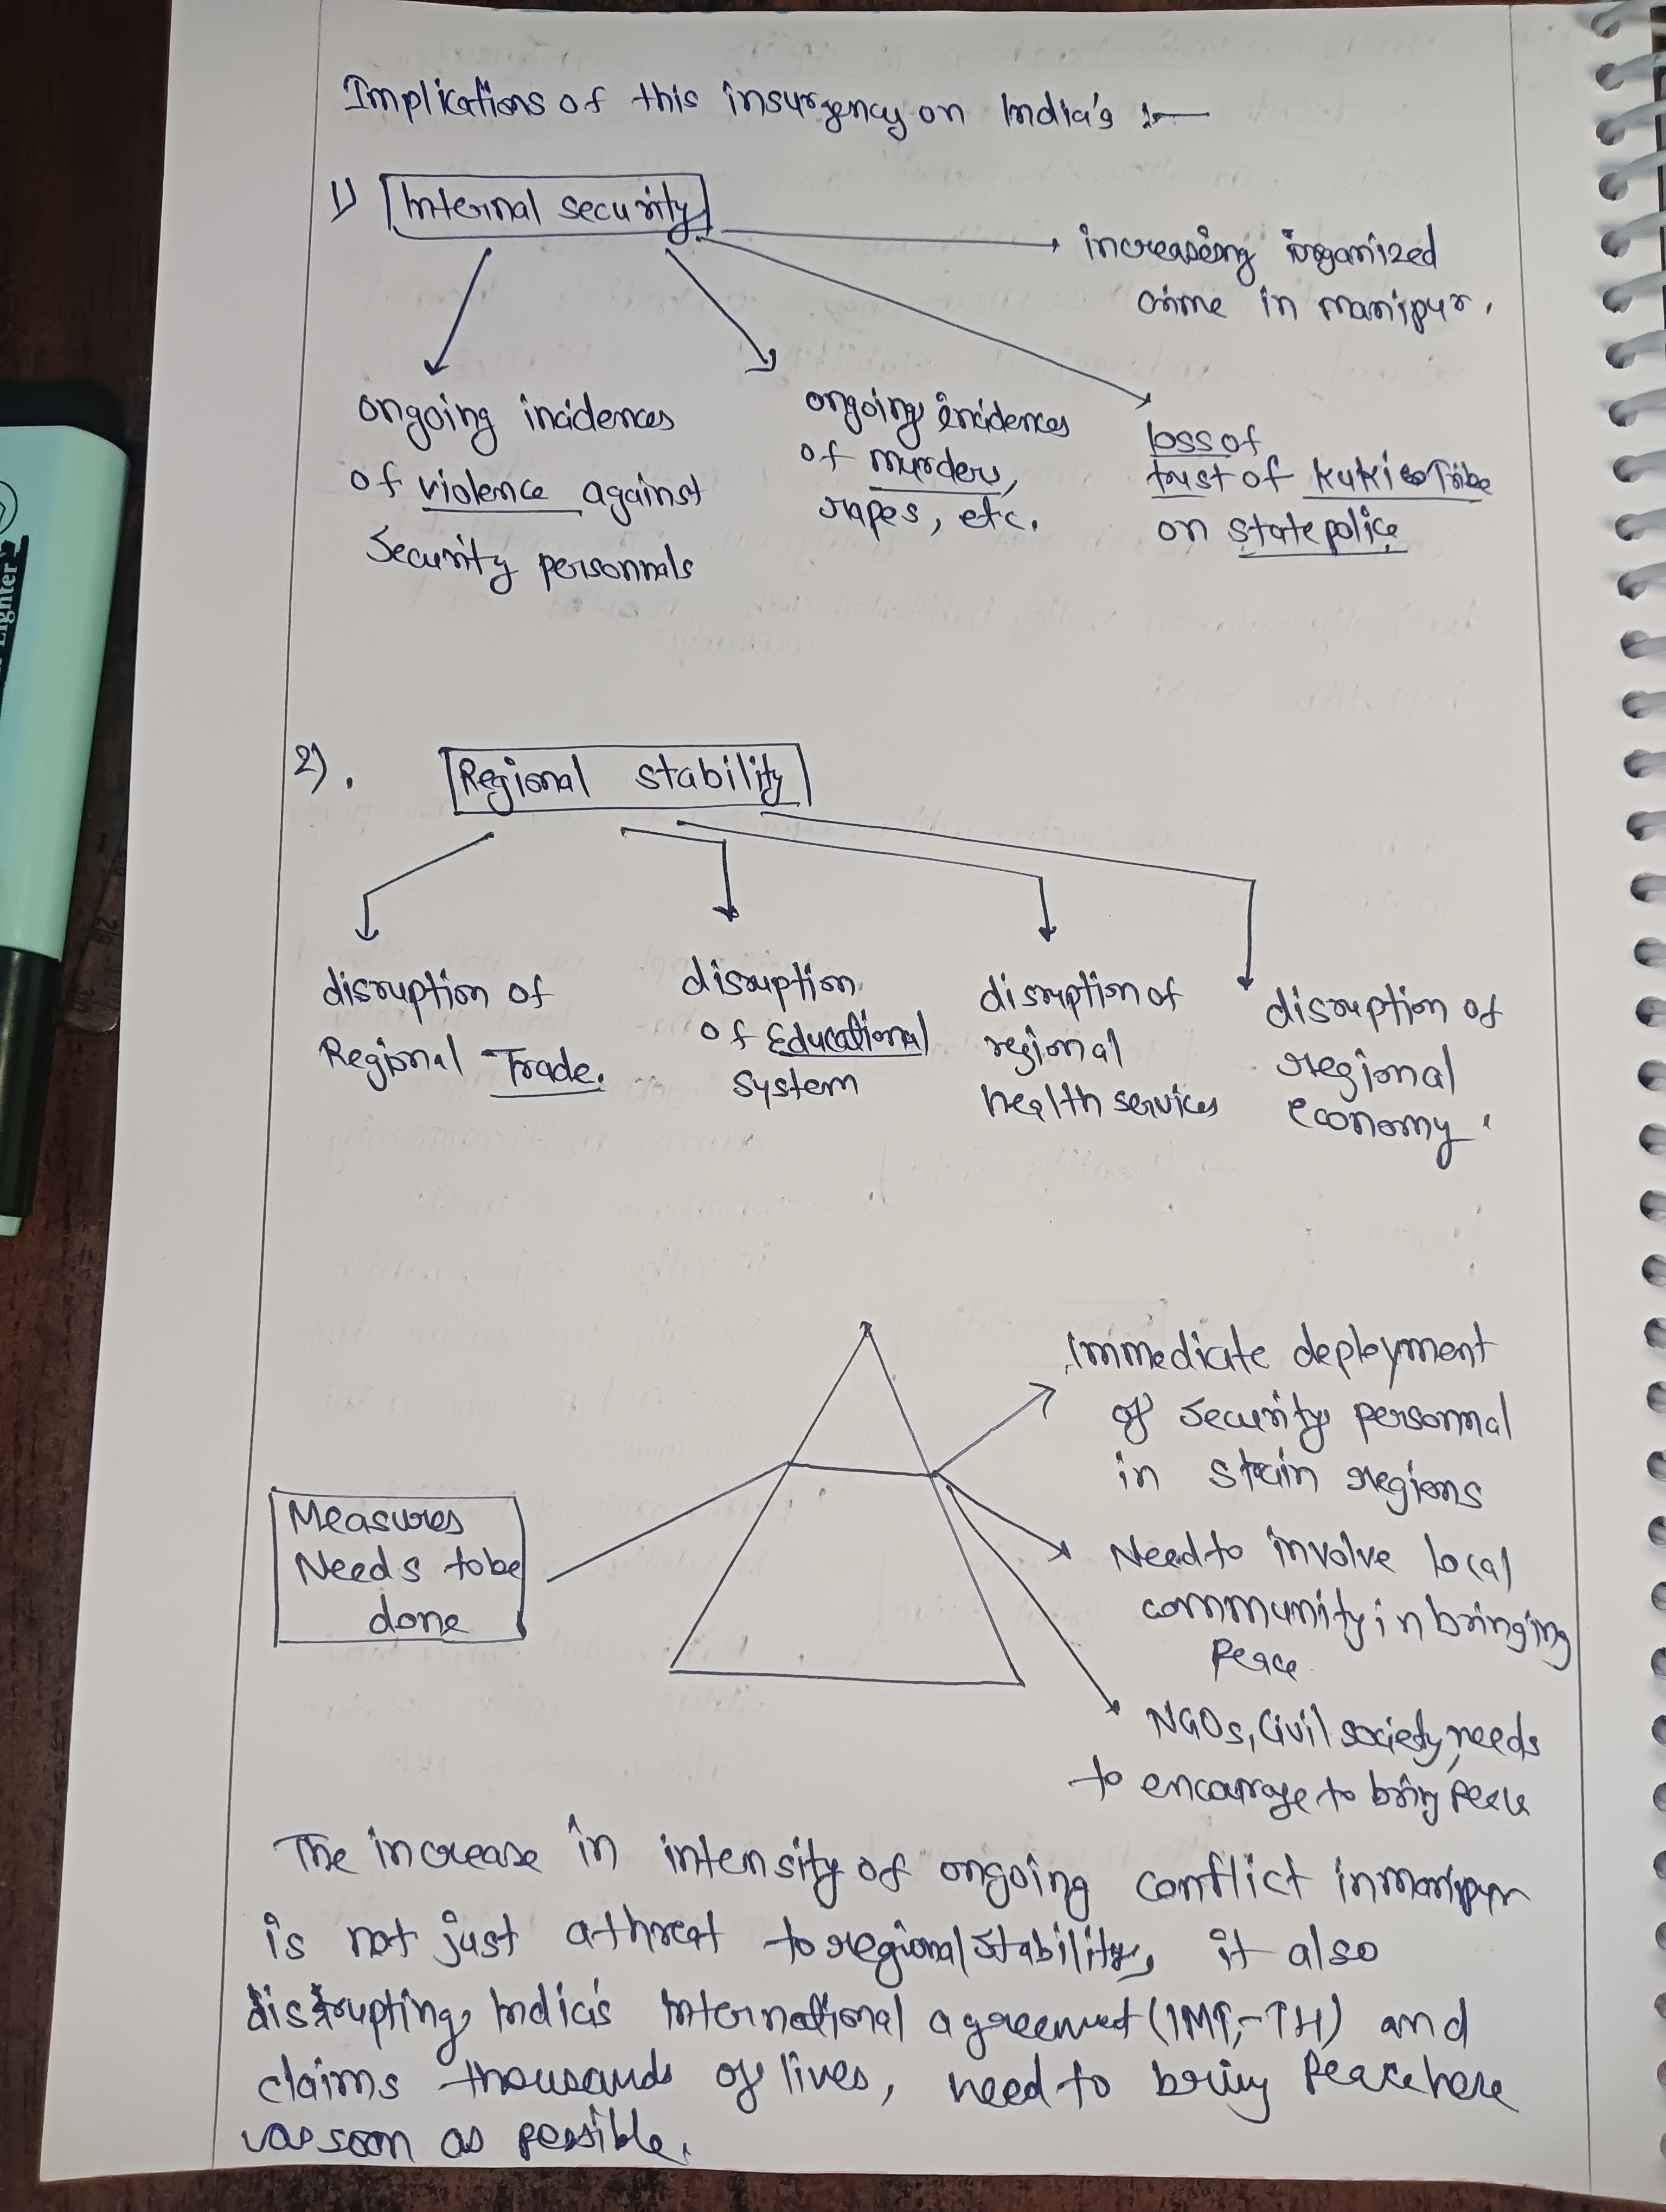 Implications of this insurgency on India's :-
1) Internal security
increaseing inorganized
crime in manipur.
ongoing incidences
of violence against
Security personnals
ongoing incidences
of murders,
rapes, etc.
loss of
trust of Kuki Tribe
on state police
2).
Regional stability
disruption of
Regional Trade.
disruption
of Educational
system
disruption of
regional
health services
disruption of
regional
economy.
Measures
Needs to be
done
Immediate deployment
of security personnal
in regions
Need to involve local
community in bringing
Peace
NGOs, Civil society needs
to encourage to bring peace
The increase in intensity of ongoing conflict in manipur
is not just a threat to regional stability, it also
disrupting India's International agreement (IMT-TH) and
claims thousands of lives, need to bring Peace here
as soon as possible.
Lighter